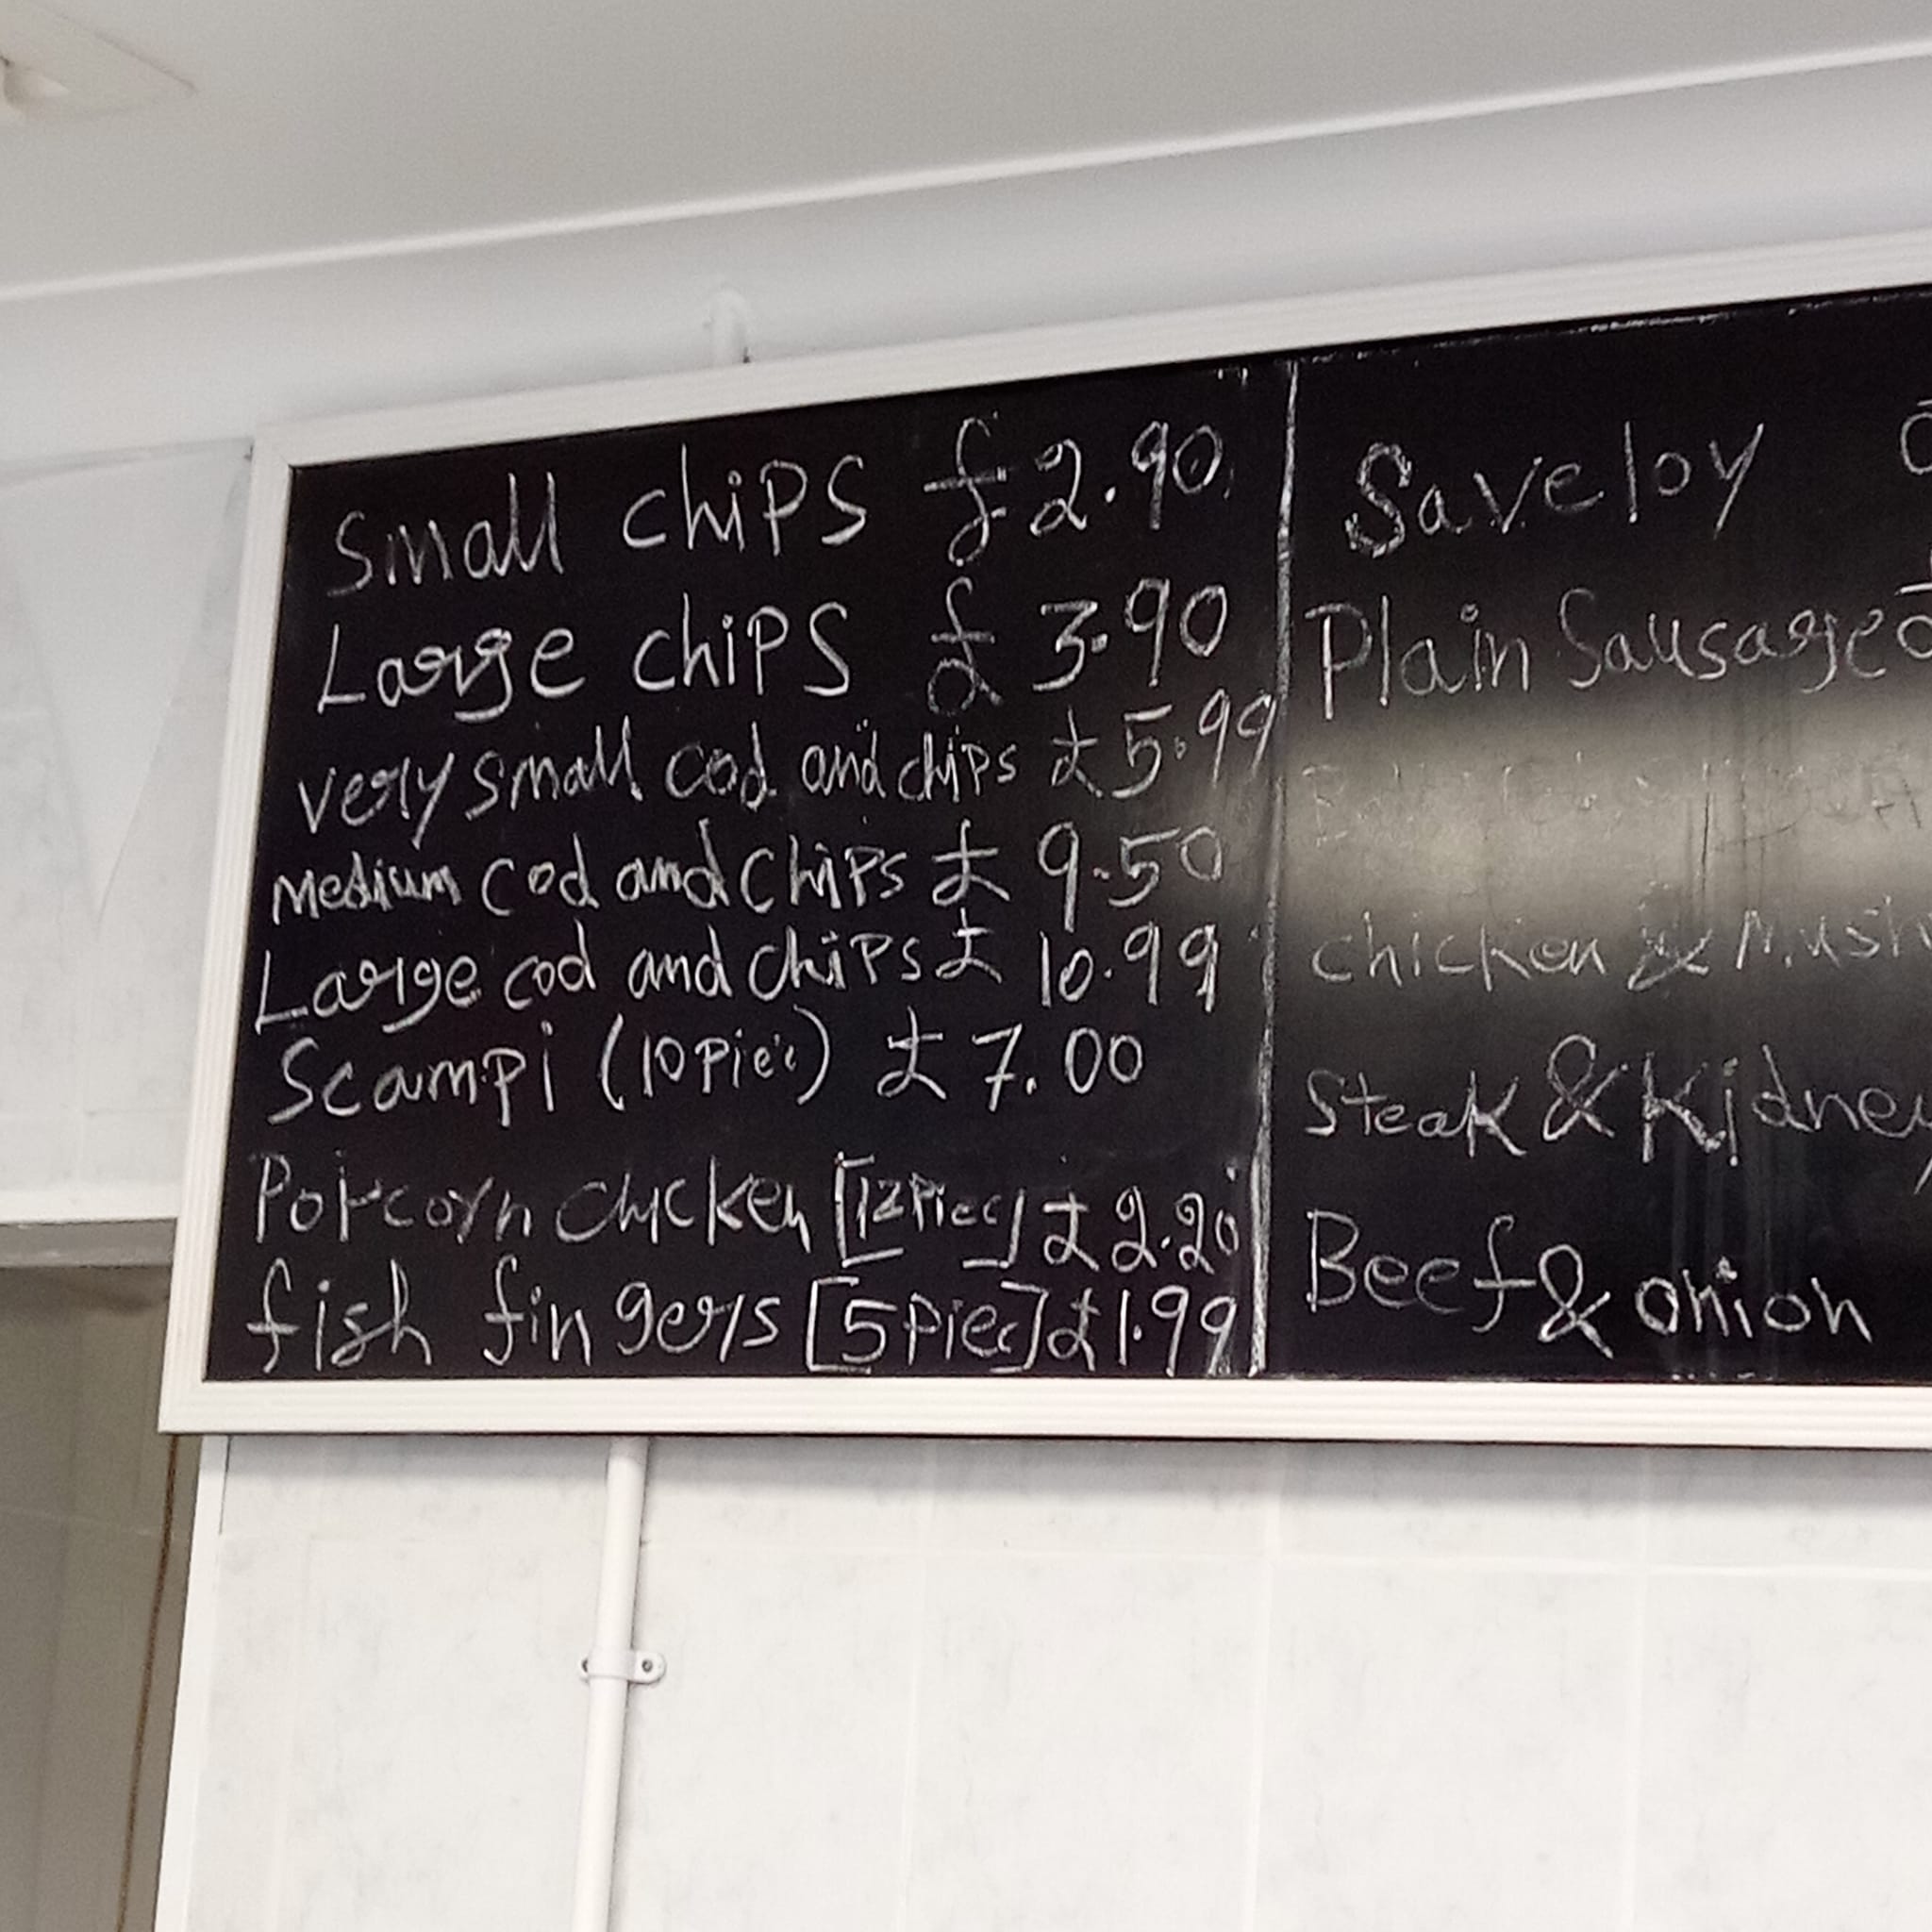 Small chips £2.90
Large chips £3.90
very small cod and chips £5.99
Medium cod and chips £9.50
Large cod and chips £10.99
Scampi (10 Piec) £7.00
Popcorn chicken [12 Piec] £2.20
fish fingers [5 Piec] £1.99
Saveloy
Plain Sausage £
chicken & Mush
Steak & Kidney
Beef & onion